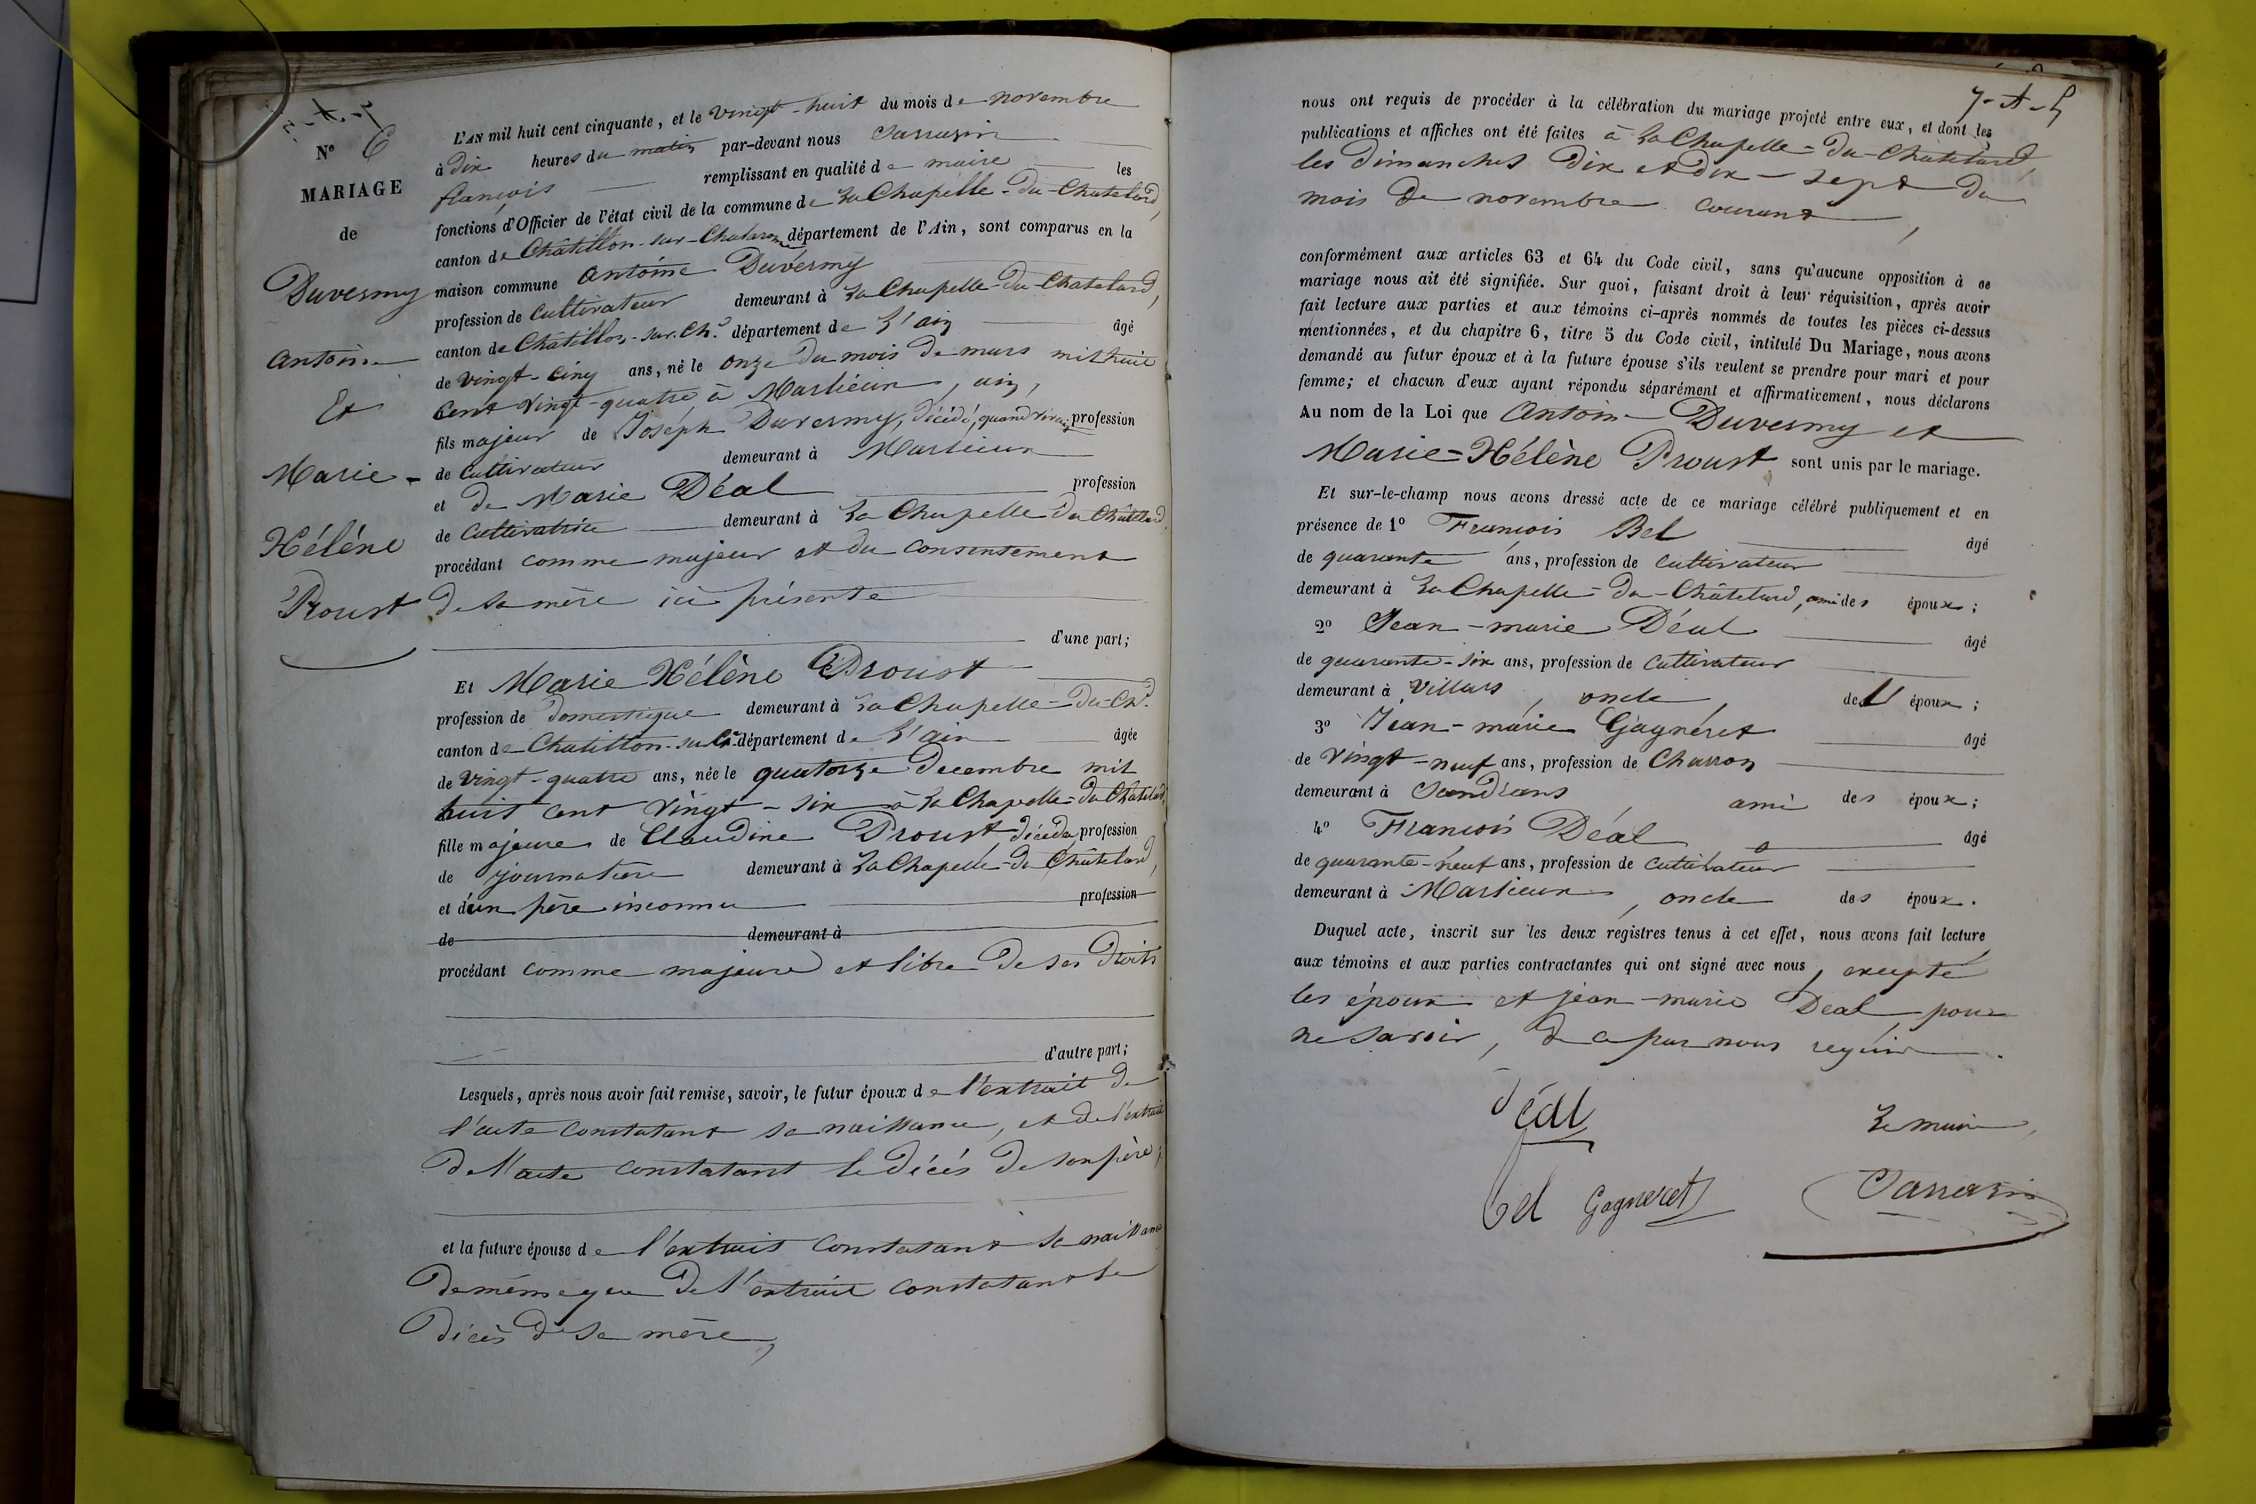 N° 6
MARIAGE
de
Duvesmy
antoine
Et
Marie-
Hélène
Proust
L'AN mil huit cent cinquante, et le vingt-huit du mois de novembre
à dix heures du matin par-devant nous Sarrasin
françois remplissant en qualité de maire les
fonctions d'Officier de l'état civil de la commune de La Chapelle-du-Chatelard,
canton de Châtillon-sur-Chalaronne département de l'Ain, sont comparus en la
maison commune antoine Duvesmy
profession de Cultivateur demeurant à La Chapelle-du-Chatelard,
canton de Châtillon-sur.Ch.e département de L'ain âgé
de vingt-cinq ans, né le onze du mois de mars mil huit
cent vingt-quatre à Marlieux, ain,
fils majeur de Joséph Duvesmy, décédé, quand vivait profession
de Cultivateur demeurant à Marlieux
et de Marie Déal profession
de Cultivatrice demeurant à La Chapelle du Châtelard
procédant comme majeur et du consentement
de sa mère ici présente
d'une part;
Et Marie Hélène Proust
profession de domestique demeurant à La Chapelle-du-Ch.d
canton de Chatillon-sur Ch. département de L'ain âgée
de vingt-quatre ans, née le quatorze decembre mil
huit cent vingt-six à La Chapelle-du Châtelard,
fille majeure de Claudine Proust, décédée, profession
de journalière demeurant à La Chapelle-du Châtelard,
et d'un père inconnu profession
de demeurant à
procédant comme majeure et libre de ses droits
d'autre part;
Lesquels, après nous avoir fait remise, savoir, le futur époux de l'extrait de
l'acte constatant sa naissance, et de l'extrait
de l'acte constatant le décés de son père;
et la future épouse de l'extrait constatant sa naissance
de même que de l'extrait constatant le
décès de sa mère,
7-A-5
nous ont requis de procéder à la célébration du mariage projeté entre eux, et dont les
publications et affiches ont été faites à La Chapelle-du-Châtelard,
les dimanches dix et dix-sept du
mois de novembre courant,
conformément aux articles 63 et 64 du Code civil, sans qu'aucune opposition à ce
mariage nous ait été signifiée. Sur quoi, faisant droit à leur réquisition, après avoir
fait lecture aux parties et aux témoins ci-après nommés de toutes les pièces ci-dessus
mentionnées, et du chapitre 6, titre 5 du Code civil, intitulé Du Mariage, nous avons
demandé au futur époux et à la future épouse s'ils veulent se prendre pour mari et pour
femme; et chacun d'eux ayant répondu séparément et affirmaticement, nous déclarons
Au nom de la Loi que Antoine Duvesmy et
Marie-Hélène Proust sont unis par le mariage.
Et sur-le-champ nous avons dressé acte de ce mariage célébré publiquement et en
présence de 1° François Bel âgé
de quarante ans, profession de cultivateur
demeurant à La Chapelle-du-Châtelard, ami des époux;
2° Jean-marie Déal âgé
de quarante-six ans, profession de cultivateur
demeurant à Villars, oncle de l'époux;
3° Jean-marie Gagnéret âgé
de vingt-neuf ans, profession de Charron
demeurant à Sandrans ami des époux;
4° François Déal âgé
de quarante-neuf ans, profession de cultivateur
demeurant à Marlieux, oncle des époux.
Duquel acte, inscrit sur les deux régistres tenus à cet effet, nous avons fait lecture
aux témoins et aux parties contractantes qui ont signé avec nous, excepté
les époux et jean-marie Déal pour
ne savoir, de ce par nous requis.
déal
Le maire,
bel Gagneret Sarrasin